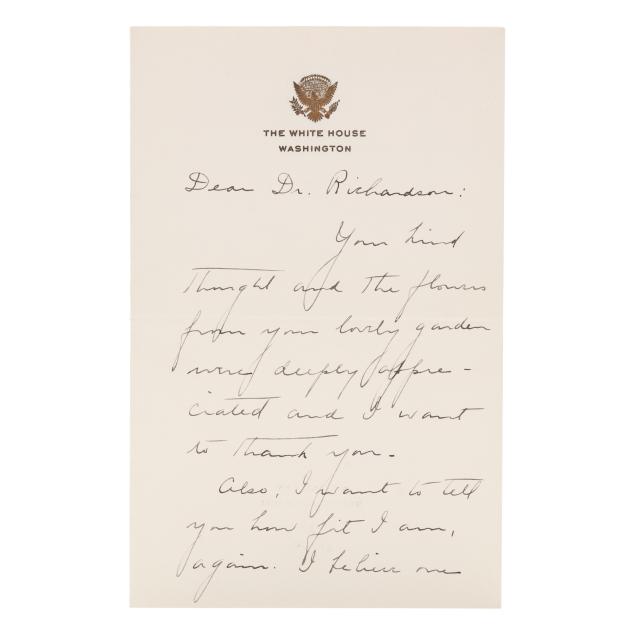 THE WHITE HOUSE
WASHINGTON
Dear Dr. Richardson:
Your kind
thought and the flowers
from your lovely garden
were deeply appre-
ciated and I want
to thank you-
Also, I want to tell
you how fit I am,
again. I believe one